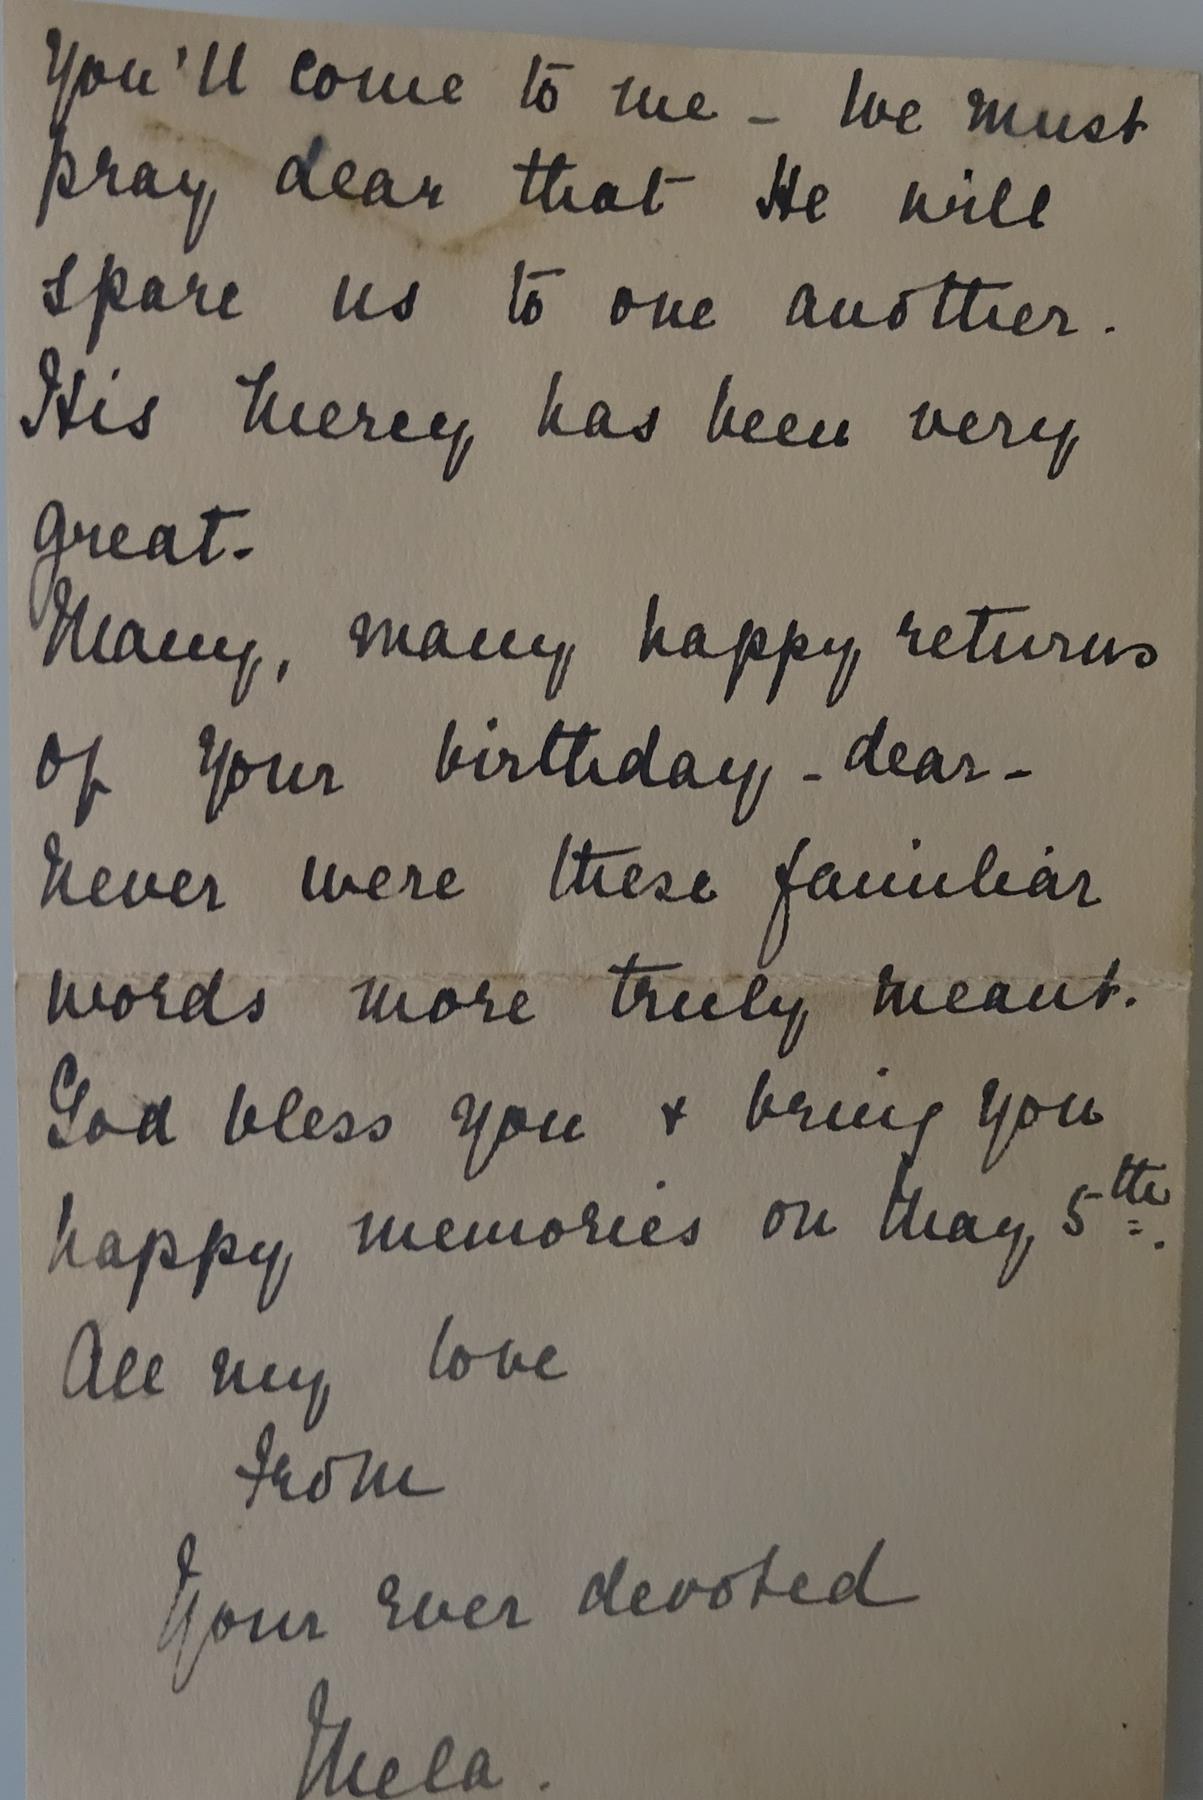 You'll come to me - We must
pray dear that He will
spare us to one another.
His Mercy has been very
great.
Many, many happy returns
of your birthday - dear -
Never were these familiar
words more truly meant.
God bless you + bring you
happy memories on May 5th.
All my love
From
Your ever devoted